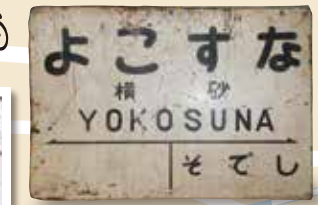 よこすな
横砂
YOKOSUNA
そでし